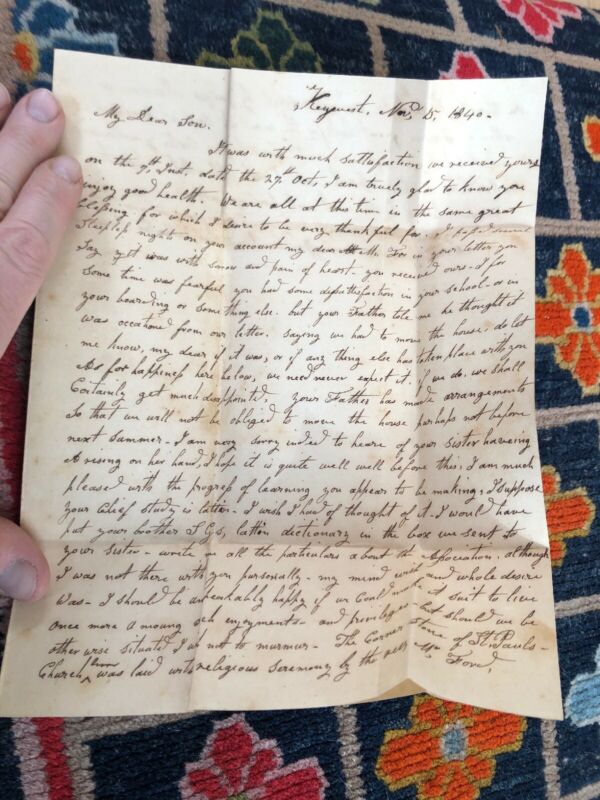 Keywest, Nov, 15, 1840-
My Dear Son.
It was with much sattisfaction we received yours
on the 9th, Inst, dated the 27th Oct, I am truely glad to know you
enjoy good health. We are all at this time in the same great
blessing, for which I desire to be every thankful for. I pass'd several
Sleepless nights on your account my dear For in your letter you
Say, yet was with sorrow and pain of heart, you received ours - I for
some time was fearful you had some disattisfaction in your school - or in
your boarding or some thing else. but your Father tels me he thought it
was occationd from our letter. saying we had to move the house, do let
me know, my dear if it was, or if any thing else has taten place with you
As for happiness here below, we need never expect it, if we do, we shall
Certainly get much disappointed, your Father has made arrangements
So that we will not be obliged to move the house perhaps not before
next Summer - I am very sorry inded to heare of your Sister haveing
A rising on her hand, I hope it is quite well well before this, I am much
pleased with the progress of learning you appears to be making, I suppose
your Chief Study is lattin - I wish I had of thought of it - I would have
put your brother lattin dictionary in the box we sent to
your Sister - write me all the particulars about the Association. although
I was not there with you personally - my mind and whole desire
was - I should be unspeakably happy if we Could make it suit to live
once more a moung such enjoyments - and priviliges - but should we be
other wise situated I ut not to murmur - The Corner Stone of St. Pauls -
Church was laid with religious seremony by the